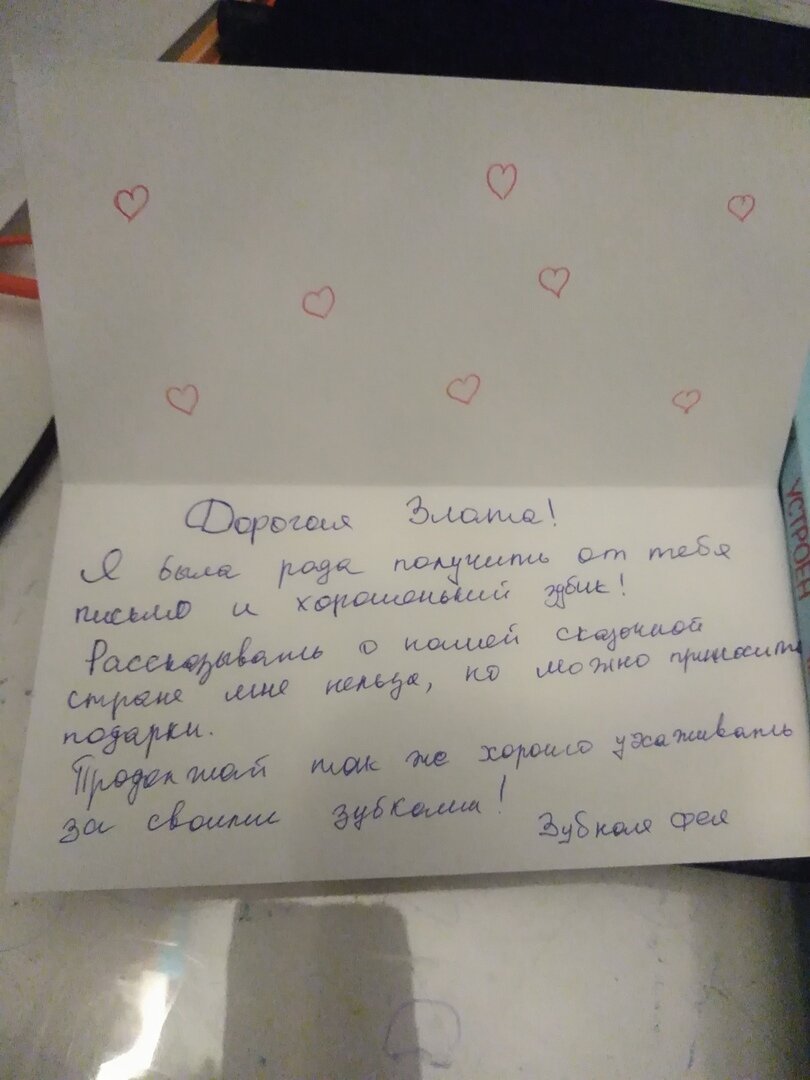 Дорогая Злата!
Я была рада получить от тебя
письмо и хорошенький зубик!
Рассказывать о нашей сказочной
стране мне нельзя, но можно приносить
подарки.
Продолжай так же хорошо ухаживать
за своими зубками!
Зубная Фея
УСТРОЕН